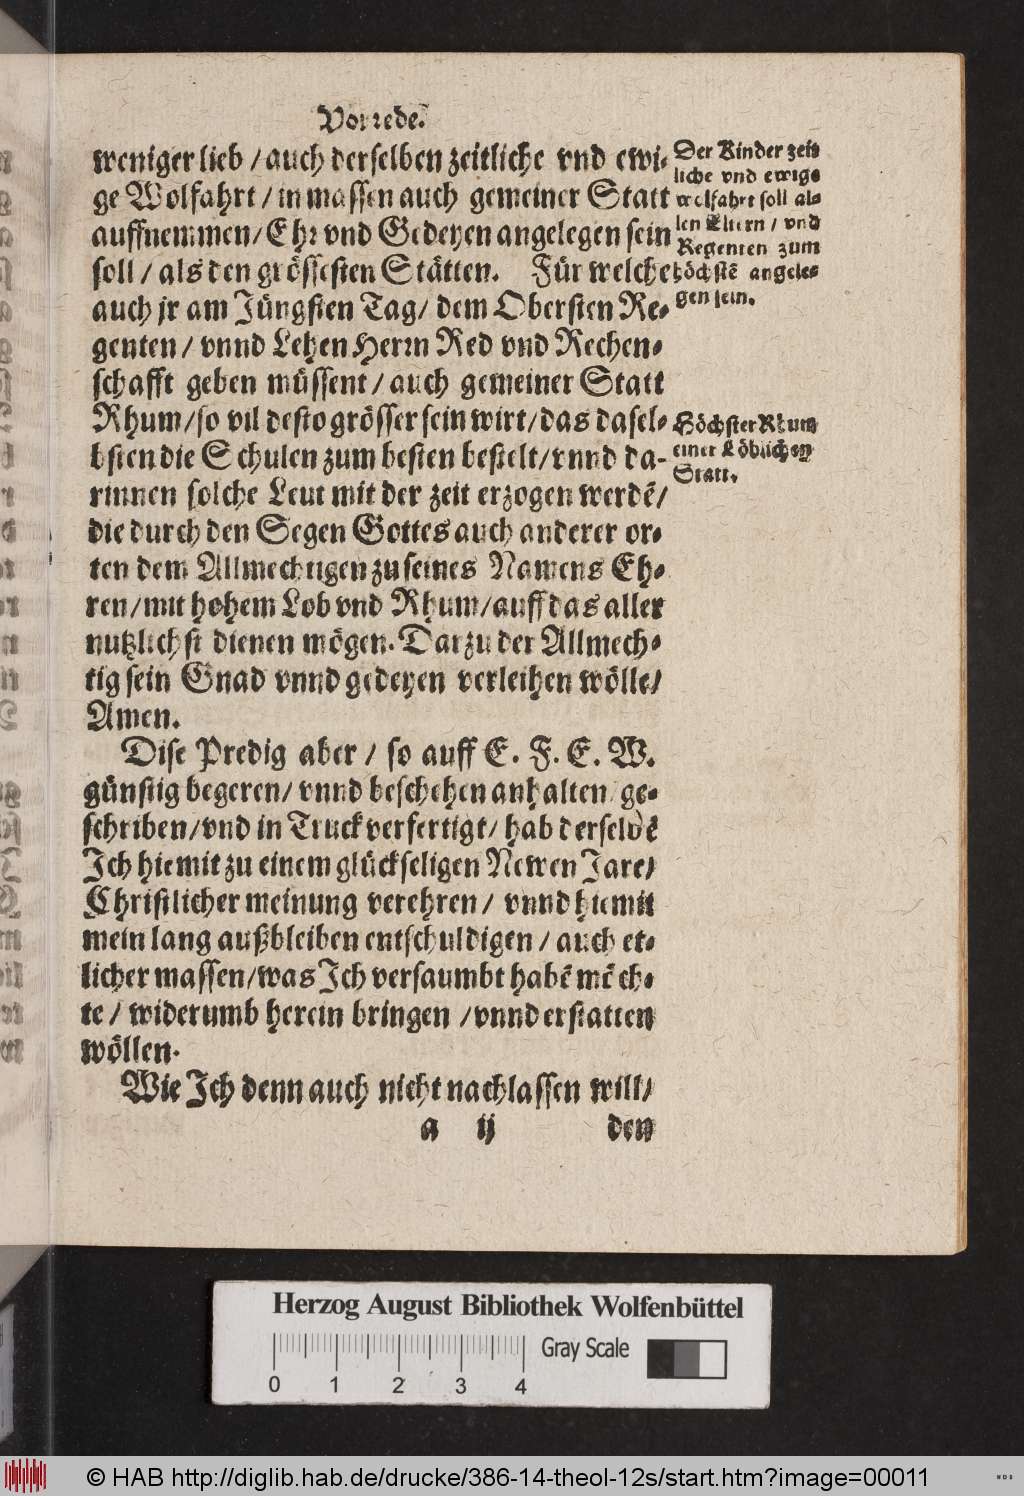 Vorrede.
weniger lieb / auch derselben zeitliche vnd ewi-
ge Wolfahrt / in massen auch gemeiner Statt
auffnemmen / Ehr vnd Gedeyen angelegen sein
soll / als den grössesten Stätten. Für welche
auch jr am Jüngsten Tag / dem Obersten Re-
genten / vnnd Lehen Herrn Red vnd Rechen-
schafft geben müssent / auch gemeiner Statt
Rhum / so vil desto grösser sein wirt / das dasel-
bsten die Schulen zum besten bestelt / vnnd da-
rinnen solche Leut mit der zeit erzogen werdẽ /
die durch den Segen Gottes auch anderer or-
ten dem Allmechtigen zu seines Namens Eh-
ren / mit hohem Lob vnd Rhum / auff das aller
nutzlichst dienen mögen. Darzu der Allmech-
tig sein Gnad vnnd gedeyen verleihen wölle /
Amen.
Dise Predig aber / so auff E. F. E. W.
günstig begeren / vnnd beschehen anhalten / ge-
schriben / vnd in Truck verfertigt / hab derselbẽ
Ich hiemit zu einem glückseligen Newen Jare /
Christlicher meinung verehren / vnnd hiemit
mein lang außbleiben entschuldigen / auch et-
licher massen / was Ich versaumbt habẽ mech-
te / widerumb herein bringen / vnnd erstatten
wöllen.
Wie Ich denn auch nicht nachlassen will /
a ij den
Der Kinder zeit
liche vnd ewige
wolfahrt soll al-
len Eltern / vnd
Regenten zum
höchstẽ angele-
gen sein.
Höchster Rhum
einer Löblichen
Statt.
Herzog August Bibliothek Wolfenbüttel
Gray Scale
0 1 2 3 4
© HAB http://diglib.hab.de/drucke/386-14-theol-12s/start.htm?image=00011